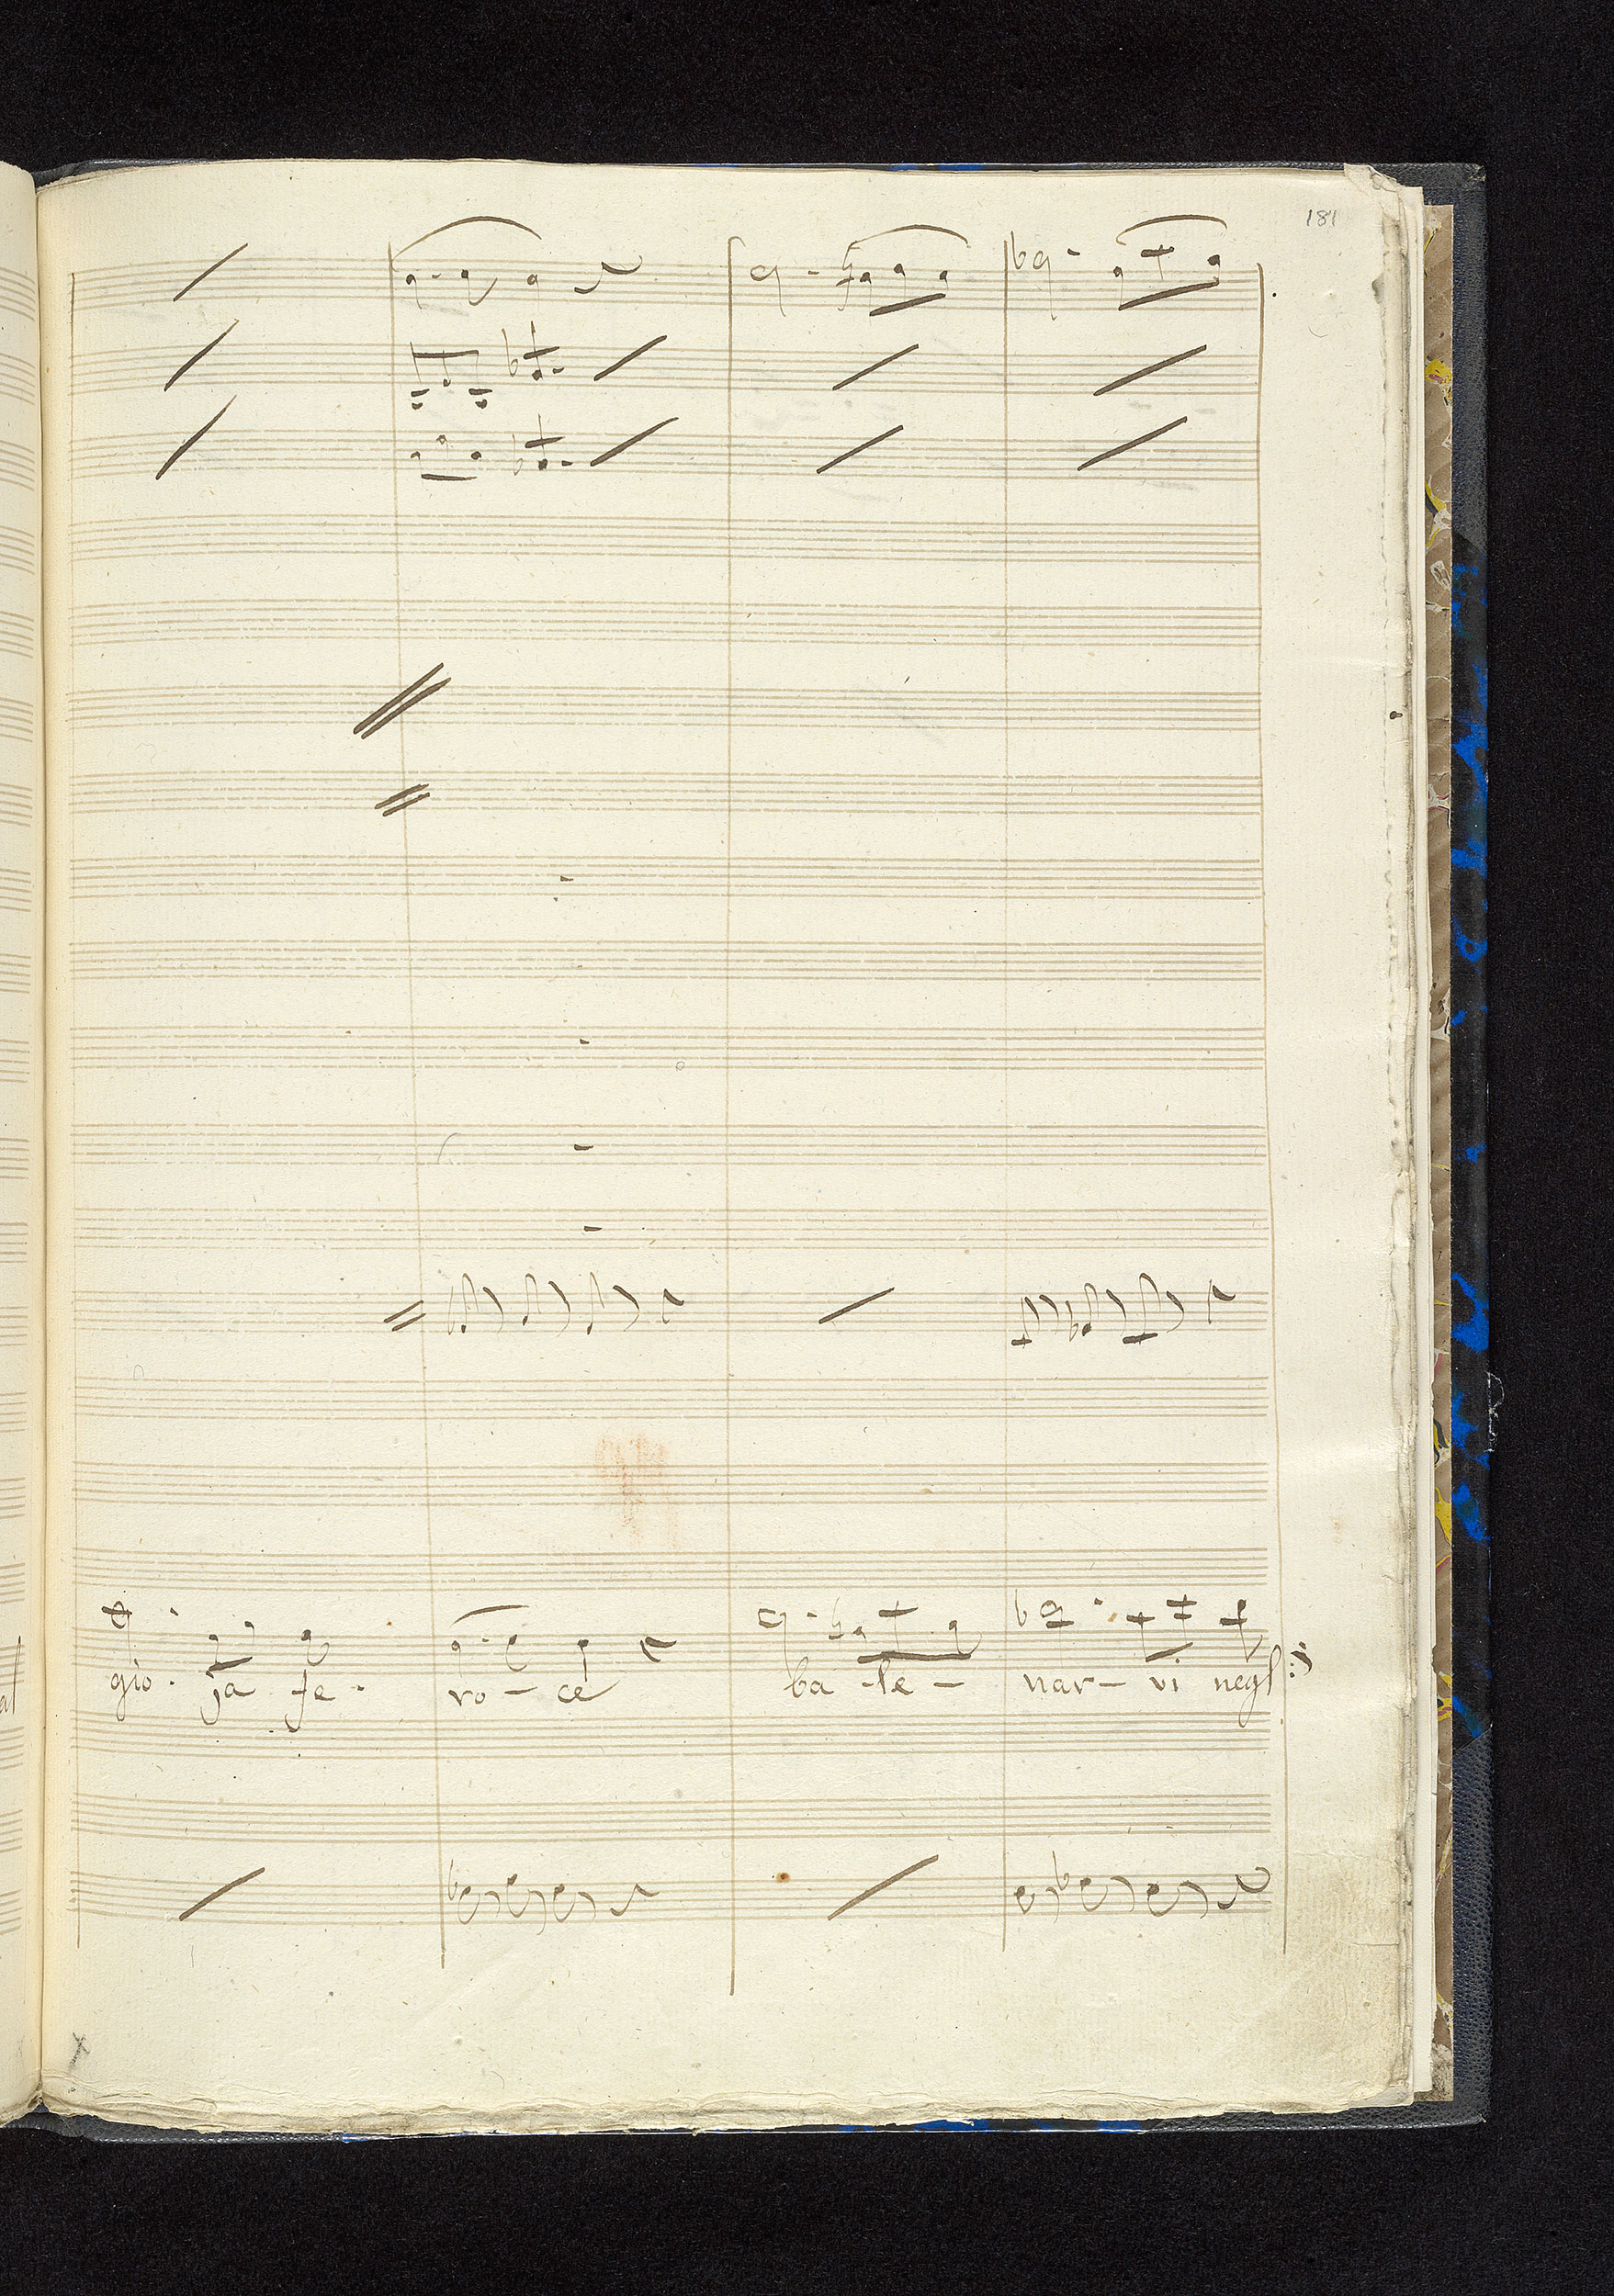 181
gio. ja fe. ro - ce ba - le - nar - vi negl